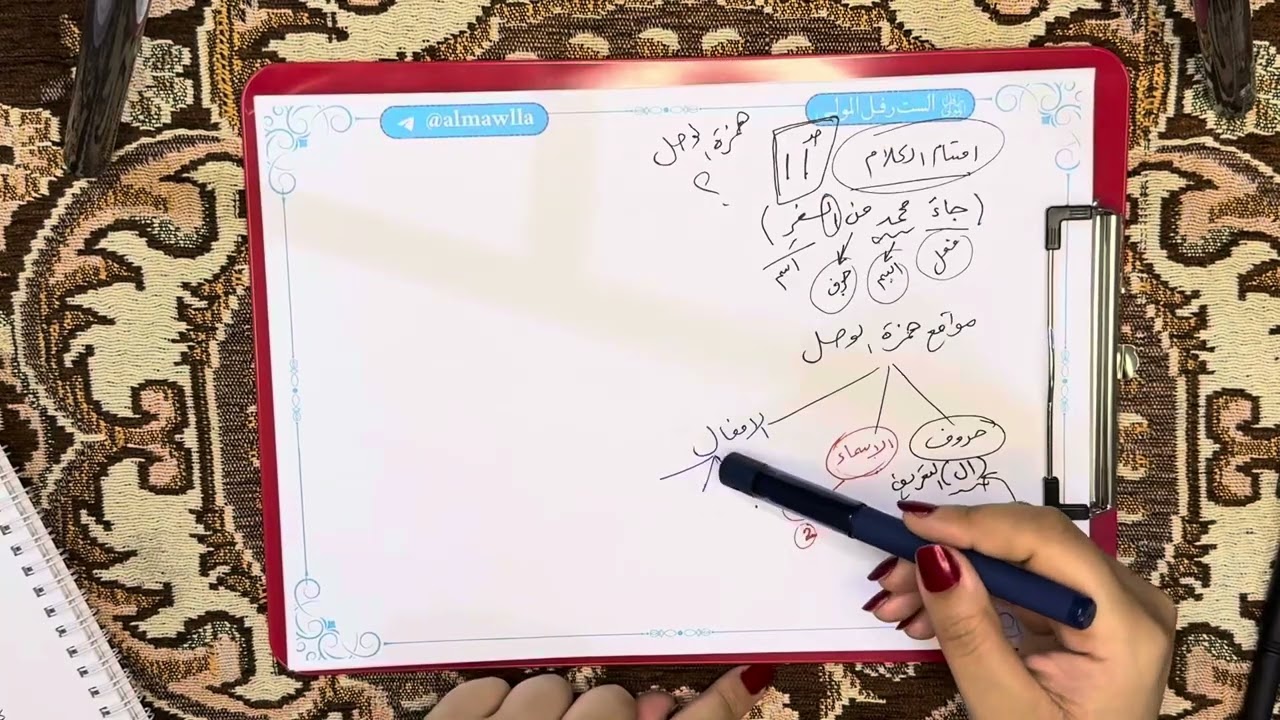 الست رفل المولى
@almawlla
اقسام الكلام
همزة الوصل
؟
(جاءَ محمد من السفر)
فعل
اسم
حرف
اسم
مواقع همزة الوصل
حروف
الاسماء
الافعال
(ال) التعريف
2